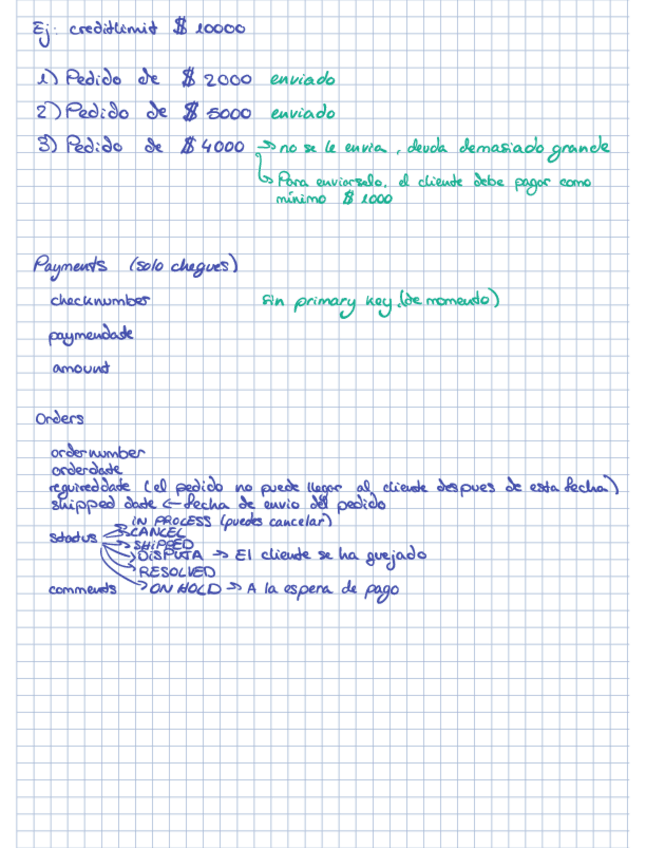 Ej: creditlimit $ 10000
1) Pedido de $ 2000 enviado
2) Pedido de $ 5000 enviado
3) Pedido de $ 4000 → no se le envia, deuda demasiado grande
↳ Para enviarselo, el cliente debe pagar como
mínimo $ 1000
Payments (solo cheques)
checknumber sin primary key (de momento)
paymentdate
amount
Orders
ordernumber
orderdate
requireddate (el pedido no puede llegar al cliente despues de esta fecha)
shipped date ← fecha de envio del pedido
IN PROCESS (puedes cancelar)
status → CANCEL
→ SHIPPED
→ DISPUTA → El cliente se ha quejado
→ RESOLVED
comments → ON HOLD → A la espera de pago